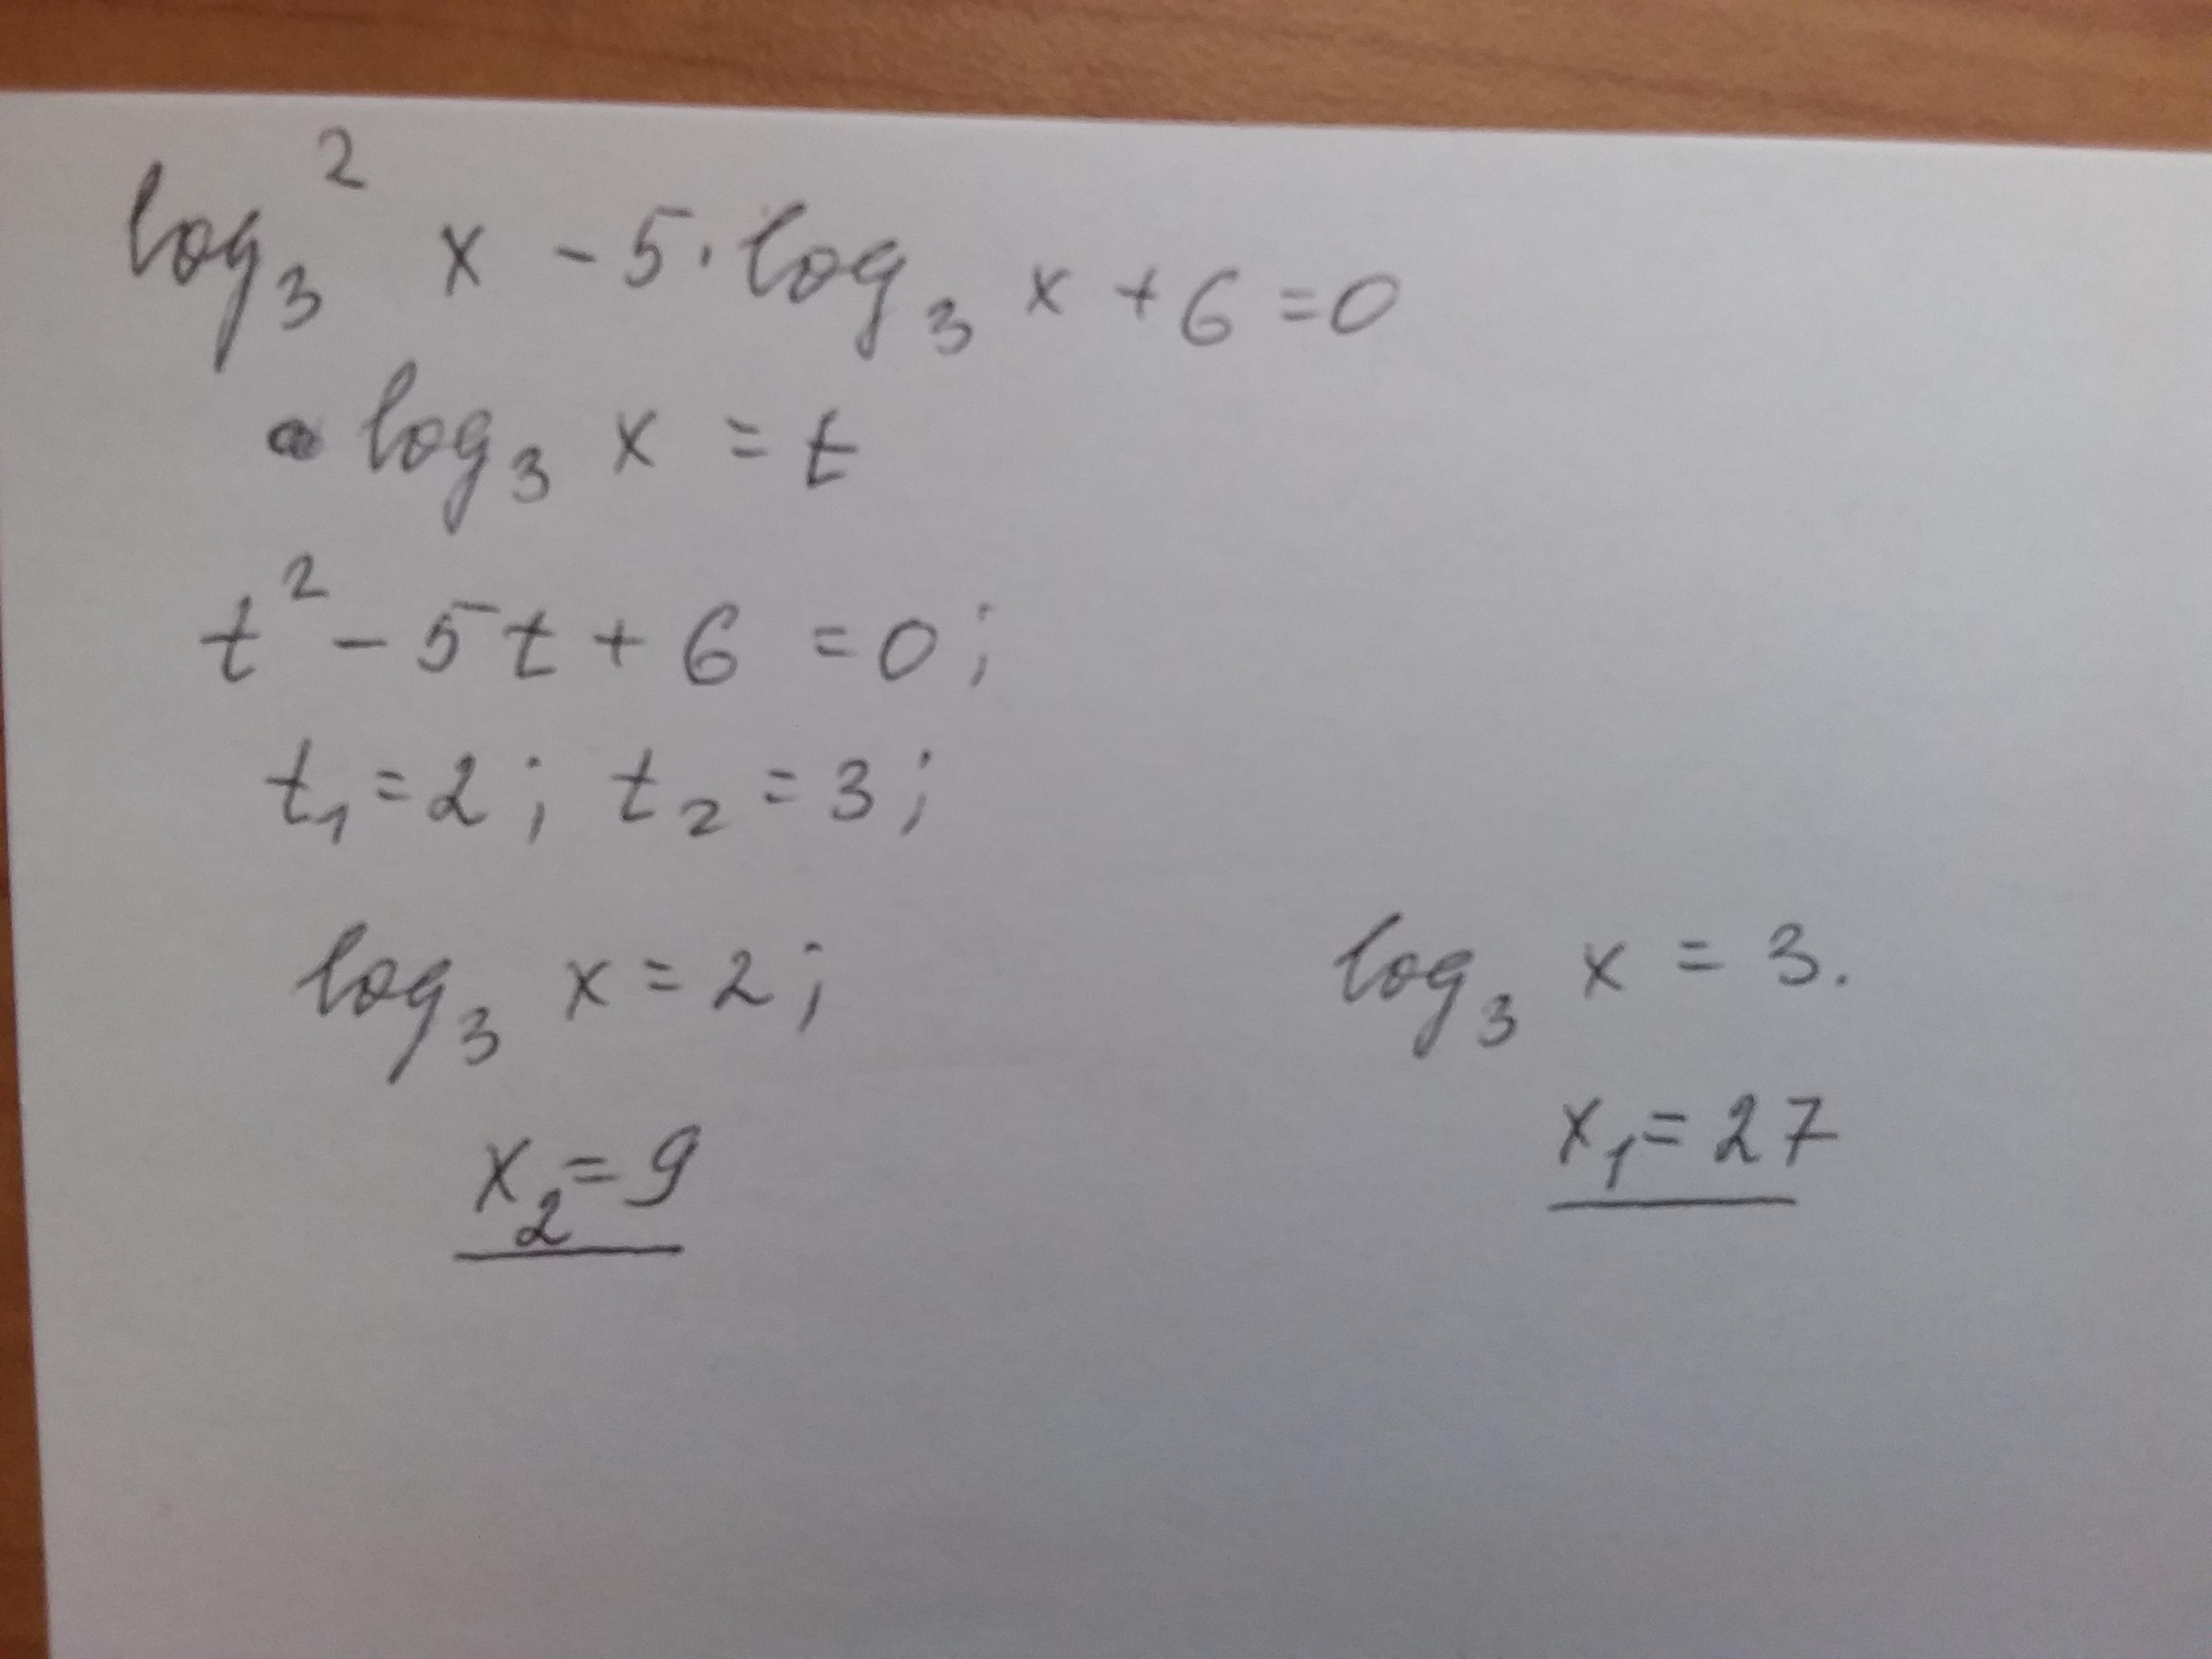 log₃² x - 5 · log₃ x + 6 = 0
log₃ x = t
t² - 5t + 6 = 0;
t₁ = 2; t₂ = 3;
log₃ x = 2; log₃ x = 3.
x₂ = 9 x₁ = 27